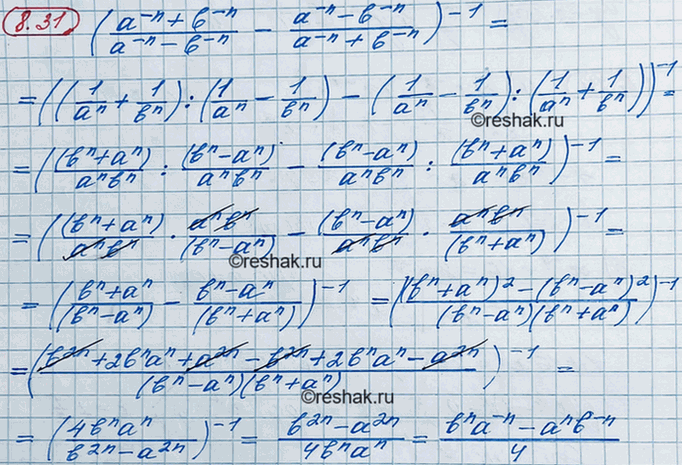 8.31 ((a⁻ⁿ + b⁻ⁿ)/(a⁻ⁿ − b⁻ⁿ) − (a⁻ⁿ − b⁻ⁿ)/(a⁻ⁿ + b⁻ⁿ))⁻¹ =
= ((1/aⁿ + 1/bⁿ) : (1/aⁿ − 1/bⁿ) − (1/aⁿ − 1/bⁿ) : (1/aⁿ + 1/bⁿ))⁻¹ =
©reshak.ru
= ((bⁿ + aⁿ)/aⁿbⁿ : (bⁿ − aⁿ)/aⁿbⁿ − (bⁿ − aⁿ)/aⁿbⁿ : (bⁿ + aⁿ)/aⁿbⁿ)⁻¹ =
= ((bⁿ + aⁿ)/aⁿbⁿ · aⁿbⁿ/(bⁿ − aⁿ) − (bⁿ − aⁿ)/aⁿbⁿ · aⁿbⁿ/(bⁿ + aⁿ))⁻¹ =
©reshak.ru
= ((bⁿ + aⁿ)/(bⁿ − aⁿ) − (bⁿ − aⁿ)/(bⁿ + aⁿ))⁻¹ = (((bⁿ + aⁿ)² − (bⁿ − aⁿ)²)/((bⁿ − aⁿ)(bⁿ + aⁿ)))⁻¹
= ((b²ⁿ + 2bⁿaⁿ + a²ⁿ − b²ⁿ + 2bⁿaⁿ − a²ⁿ)/((bⁿ − aⁿ)(bⁿ + aⁿ)))⁻¹ =
©reshak.ru
= (4bⁿaⁿ/(b²ⁿ − a²ⁿ))⁻¹ = (b²ⁿ − a²ⁿ)/4bⁿaⁿ = (bⁿa⁻ⁿ − aⁿb⁻ⁿ)/4